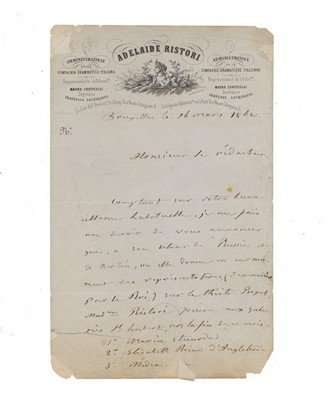 ADELAIDE RISTORI
AMMINISTRAZIONE
DELLA
COMPAGNIA DRAMMATICA ITALIANA
AMMINISTRAZIONE
DELLA
COMPAGNIA DRAMMATICA ITALIANA
Nº.
Bruxelles le 16 mars 1862
Monsieur le rédacteur
Comptant sur votre bien-
veillance habituelle, je me fais
un devoir de vous annoncer
que, à son retour de Russie et
de Berlin, où elle donne en ce mo-
ment des représentations, (demandées
par le Roi) sur le théâtre Royal,
Mad.me Ristori jouera aux Gale-
ries St hubert, vers la fin de ce mois.
1º Marie Stuarda
2º Elisabeth Reine d'Angleterre
3º Médea